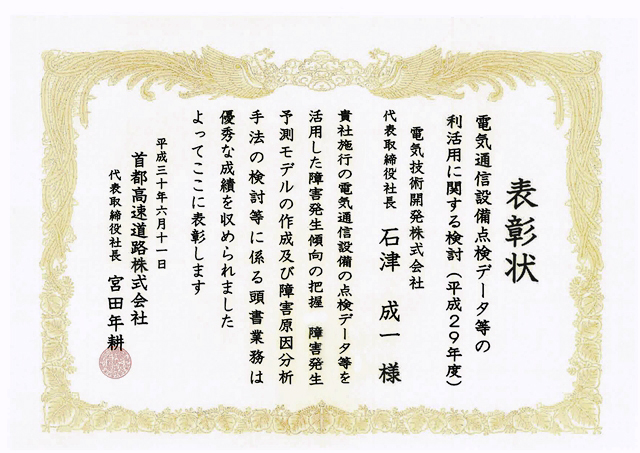 表彰状
電気通信設備点検データ等の
利活用に関する検討（平成２９年度）
電気技術開発株式会社
代表取締役社長 石津 成一 様
貴社施行の電気通信設備の点検データ等を
活用した障害発生傾向の把握 障害発生
予測モデルの作成及び障害原因分析
手法の検討等に係る頭書業務は
優秀な成績を収められました
よってここに表彰します
平成三十年六月十一日
首都高速道路株式会社
代表取締役社長 宮田年耕